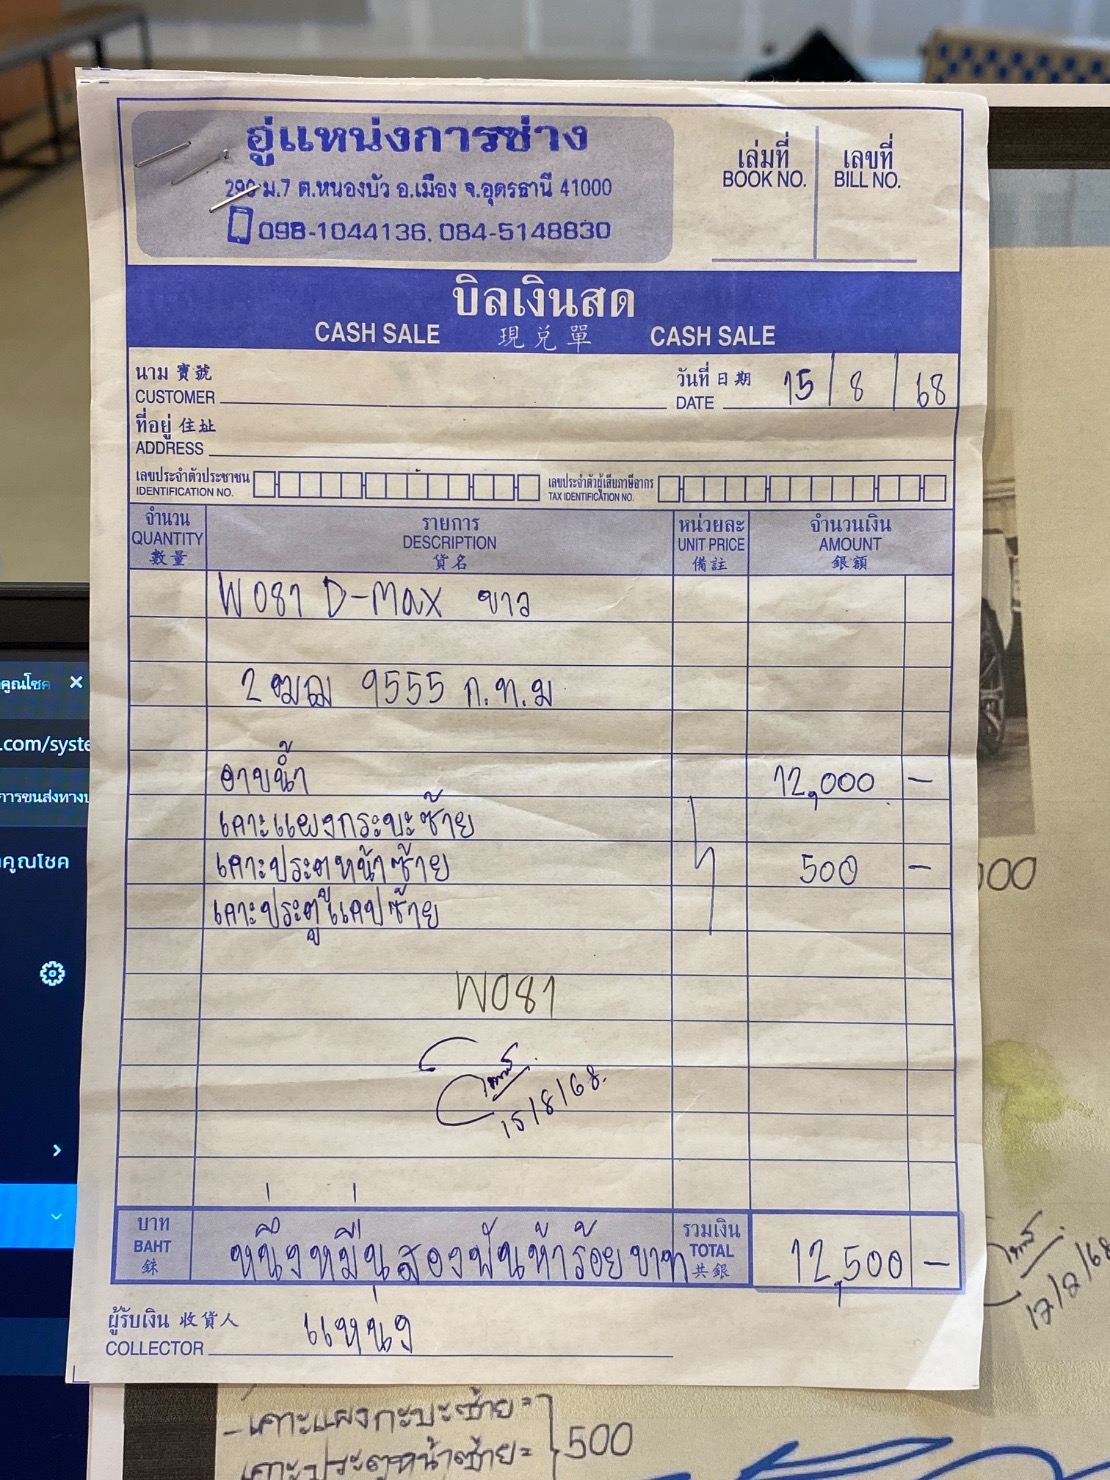 อู่แหน่งการช่าง
290 ม.7 ต.หนองบัว อ.เมือง จ.อุดรธานี 41000
098-1044136, 084-5148830
เล่มที่ เลขที่
BOOK NO. BILL NO.
บิลเงินสด
CASH SALE 現兌單 CASH SALE
นาม 寶號 วันที่ 日期 15/8/68
CUSTOMER DATE
ที่อยู่ 住址
ADDRESS
เลขประจำตัวประชาชน เลขประจำตัวผู้เสียภาษีอากร
IDENTIFICATION NO. TAX IDENTIFICATION NO.
จำนวน รายการ หน่วยละ จำนวนเงิน
QUANTITY DESCRIPTION UNIT PRICE AMOUNT
數量 貨名 備註 銀額
W081 D-Max ขาว
2ฒฌ 9555 ก.ท.ม
อาบน้ำ 12,000 -
เคาะแผงกระบะซ้าย
เคาะประตูหน้าซ้าย 500 -
เคาะประตูแคปซ้าย
W081
15/8/68.
บาท รวมเงิน
BAHT หนึ่งหมื่นสองพันห้าร้อยบาท TOTAL 12,500 -
銖 共銀
ผู้รับเงิน 收貨人 แหน่ง
COLLECTOR
คูณโชค
.com/syste
การขนส่งทางบ
คูณโชค
- เคาะแผงกะบะซ้าย =
เคาะประตูหน้าซ้าย = 500